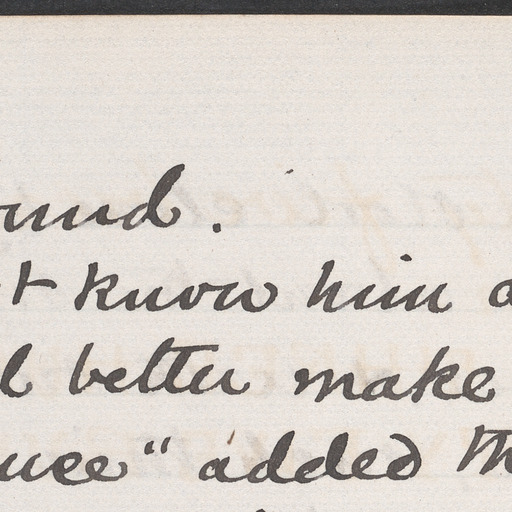 ound.
t know him a
l better make
uce" added th